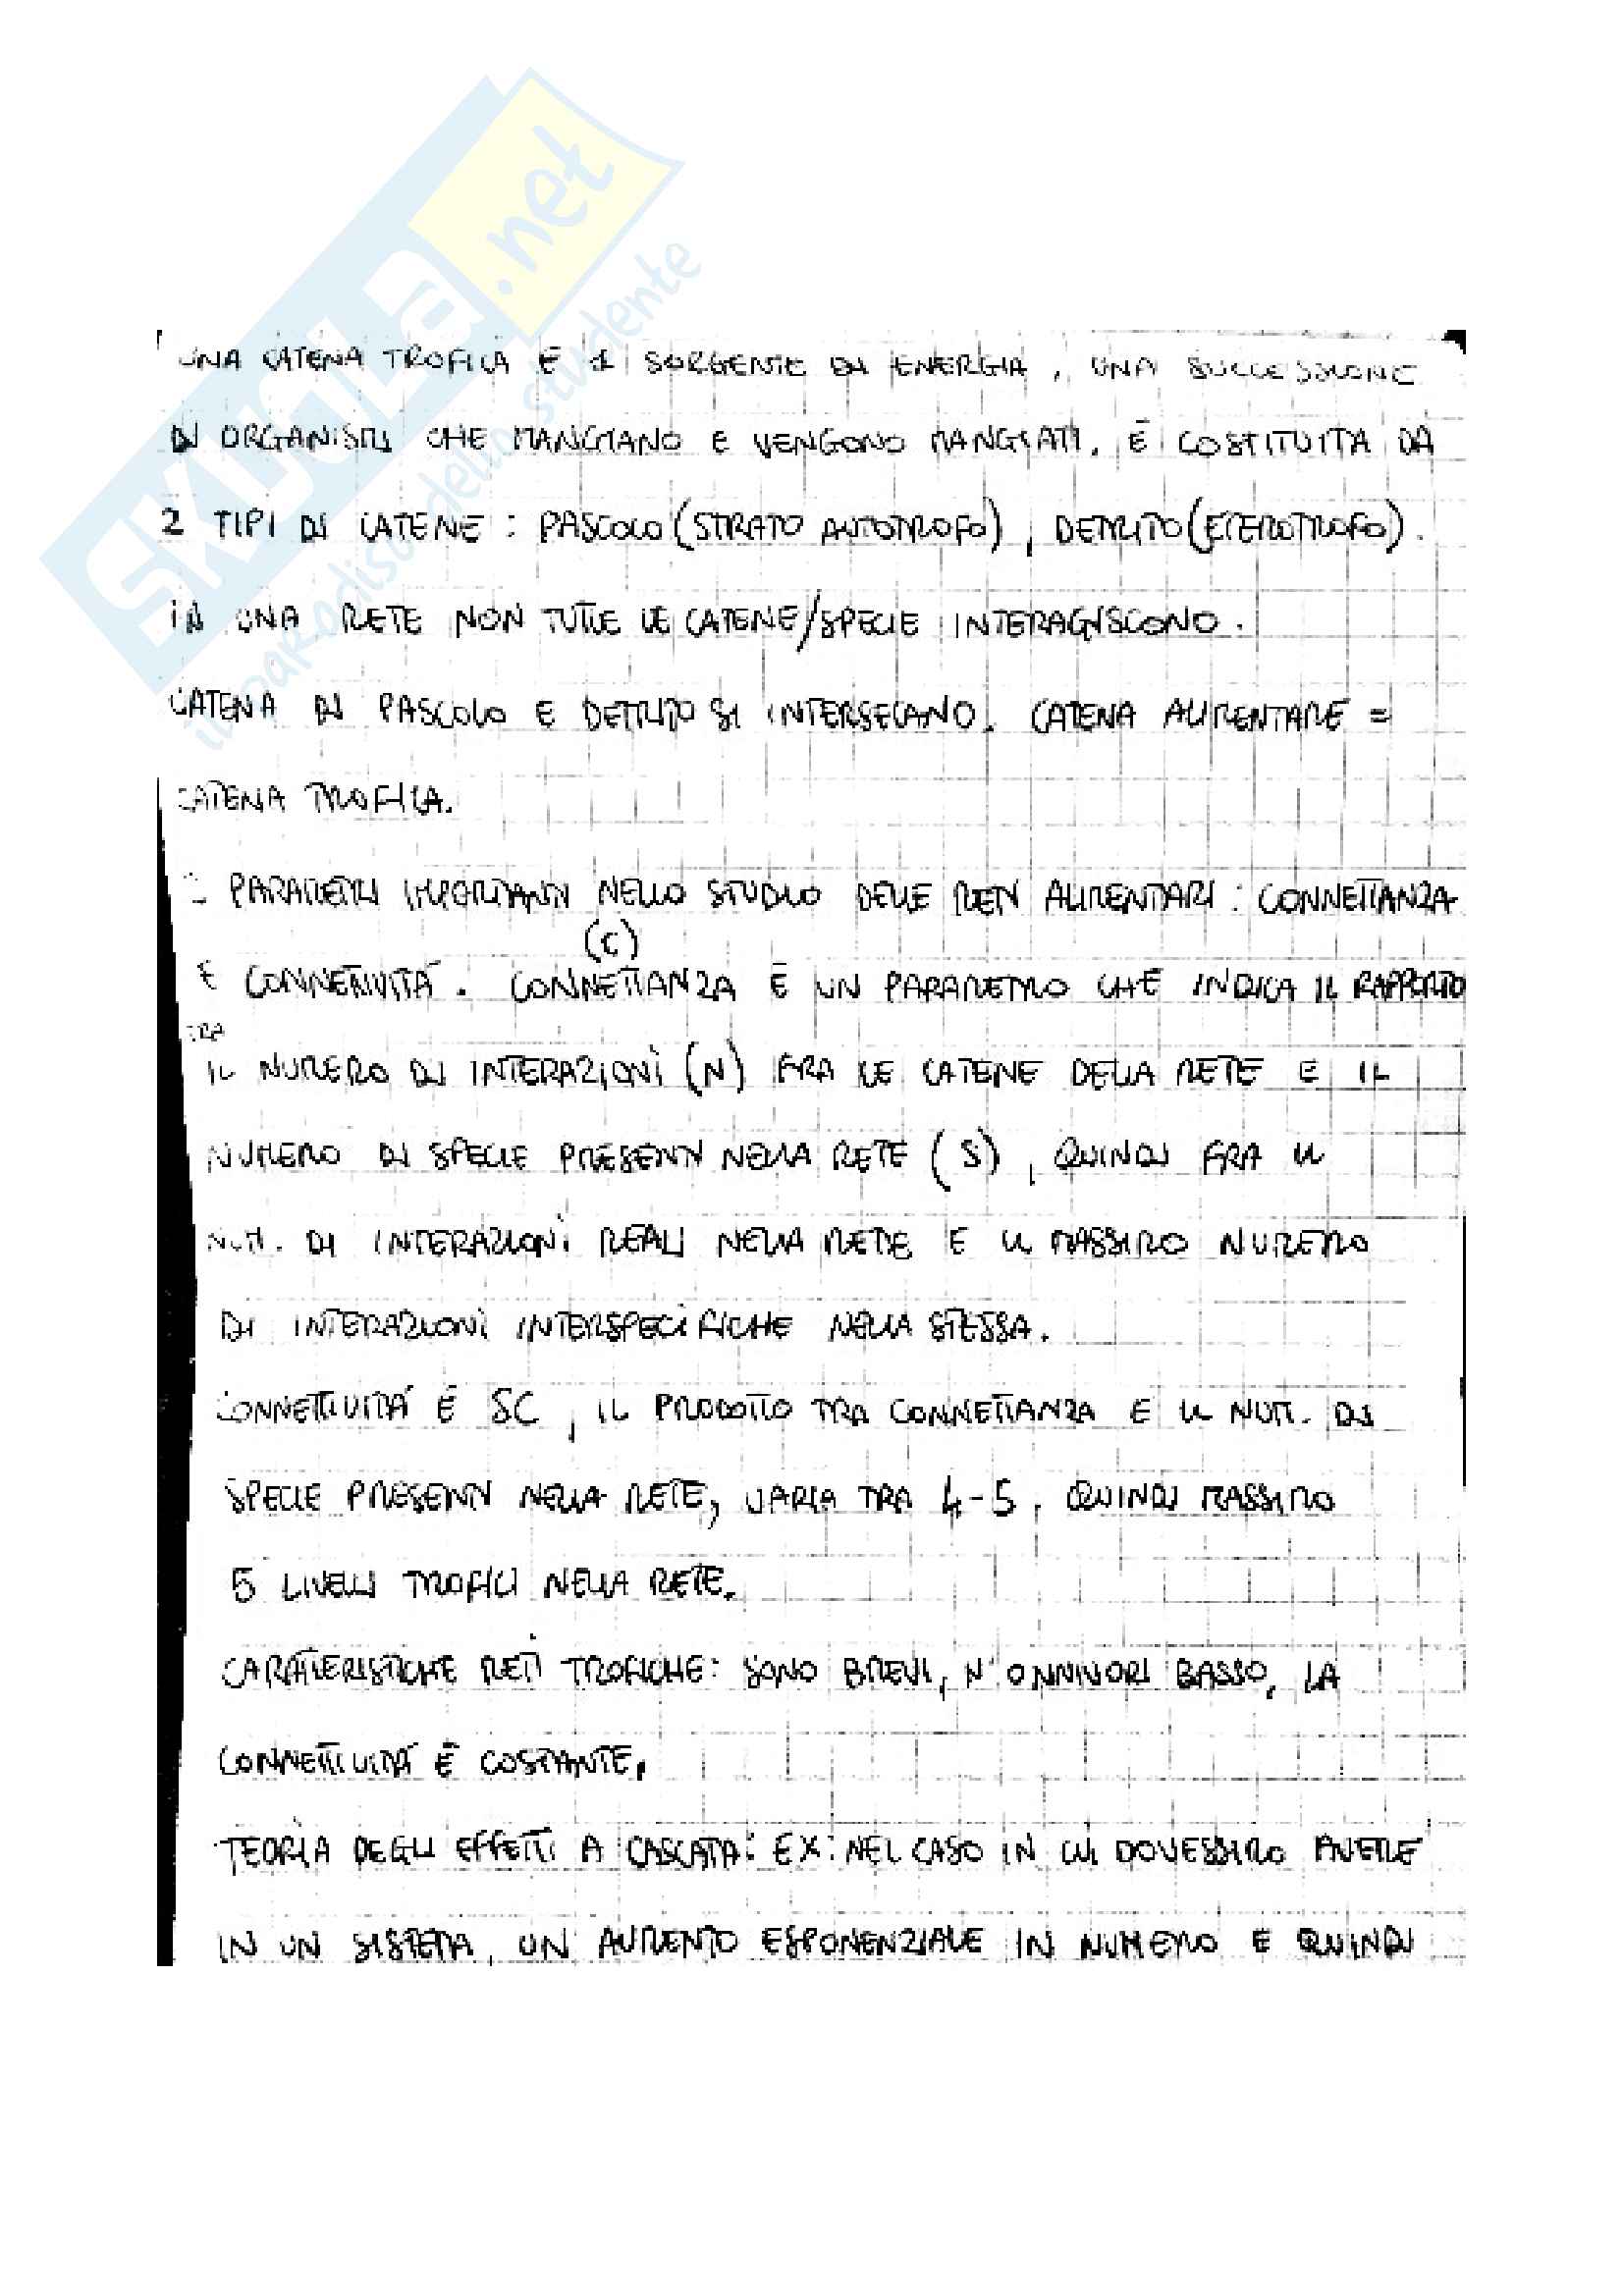 SKUOLA.net
il paradiso dello studente
UNA CATENA TROFICA È 1 SORGENTE DI ENERGIA, UNA SUCCESSIONE
DI ORGANISMI CHE MANGIANO E VENGONO MANGIATI. È COSTITUITA DA
2 TIPI DI CATENE: PASCOLO (STRATO AUTOTROFO), DETRITO (ETEROTROFO).
IN UNA RETE NON TUTTE LE CATENE/SPECIE INTERAGISCONO.
CATENA DI PASCOLO E DETRITO SI INTERSECANO. CATENA ALIMENTARE =
CATENA TROFICA.
PARAMETRI IMPORTANTI NELLO STUDIO DELLE RETI ALIMENTARI: CONNETTANZA
(C)
E CONNETTIVITÀ. CONNETTANZA È UN PARAMETRO CHE INDICA IL RAPPORTO
TRA
IL NUMERO DI INTERAZIONI (N) FRA LE CATENE DELLA RETE E IL
NUMERO DI SPECIE PRESENTI NELLA RETE (S), QUINDI FRA IL
NUM. DI INTERAZIONI REALI NELLA RETE E IL MASSIMO NUMERO
DI INTERAZIONI INTERSPECIFICHE NELLA STESSA.
CONNETTIVITÀ È SC, IL PRODOTTO TRA CONNETTANZA E IL NUM. DI
SPECIE PRESENTI NELLA RETE, VARIA TRA 4-5. QUINDI MASSIMO
5 LIVELLI TROFICI NELLA RETE.
CARATTERISTICHE RETI TROFICHE: SONO BREVI, N° ONNIVORI BASSO, LA
CONNETTIVITÀ È COSTANTE.
TEORIA DEGLI EFFETTI A CASCATA: EX: NEL CASO IN CUI DOVESSIMO AVERE
IN UN SISTEMA, UN AUMENTO ESPONENZIALE IN NUMERO E QUINDI